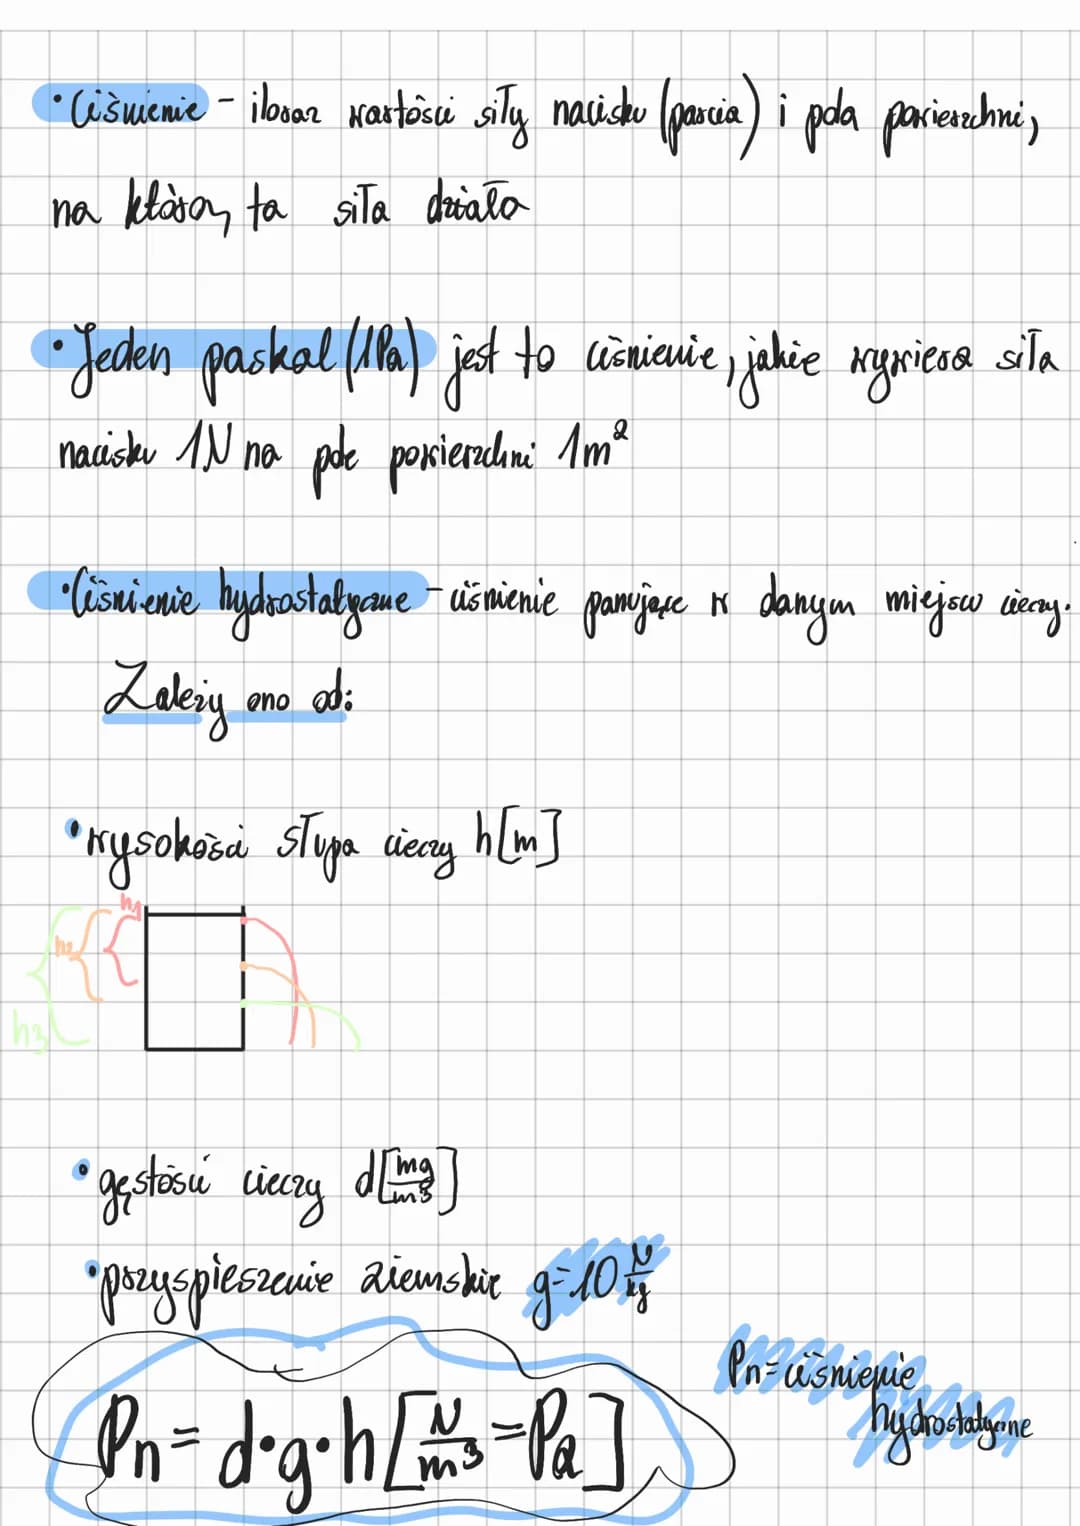 • Ciśnienie - iloraz wartości siły nacisku (parcia) i pola powierzchni,
na którą ta siła działa
• Jeden paskal (1Pa) jest to ciśnienie, jakie wywiera siła
nacisku 1N na pole powierzchni 1m²
• Ciśnienie hydrostatyczne - ciśnienie panujące w danym miejscu cieczy.
Zależy ono od:
• wysokości słupa cieczy h[m]
h1
h2
h3
• gęstości cieczy d[mg/m³]
• przyspieszenie ziemskie g=10 N/kg
Pn = d·g·h [N/m³ = Pa]
Pn = ciśnienie
hydrostatyczne